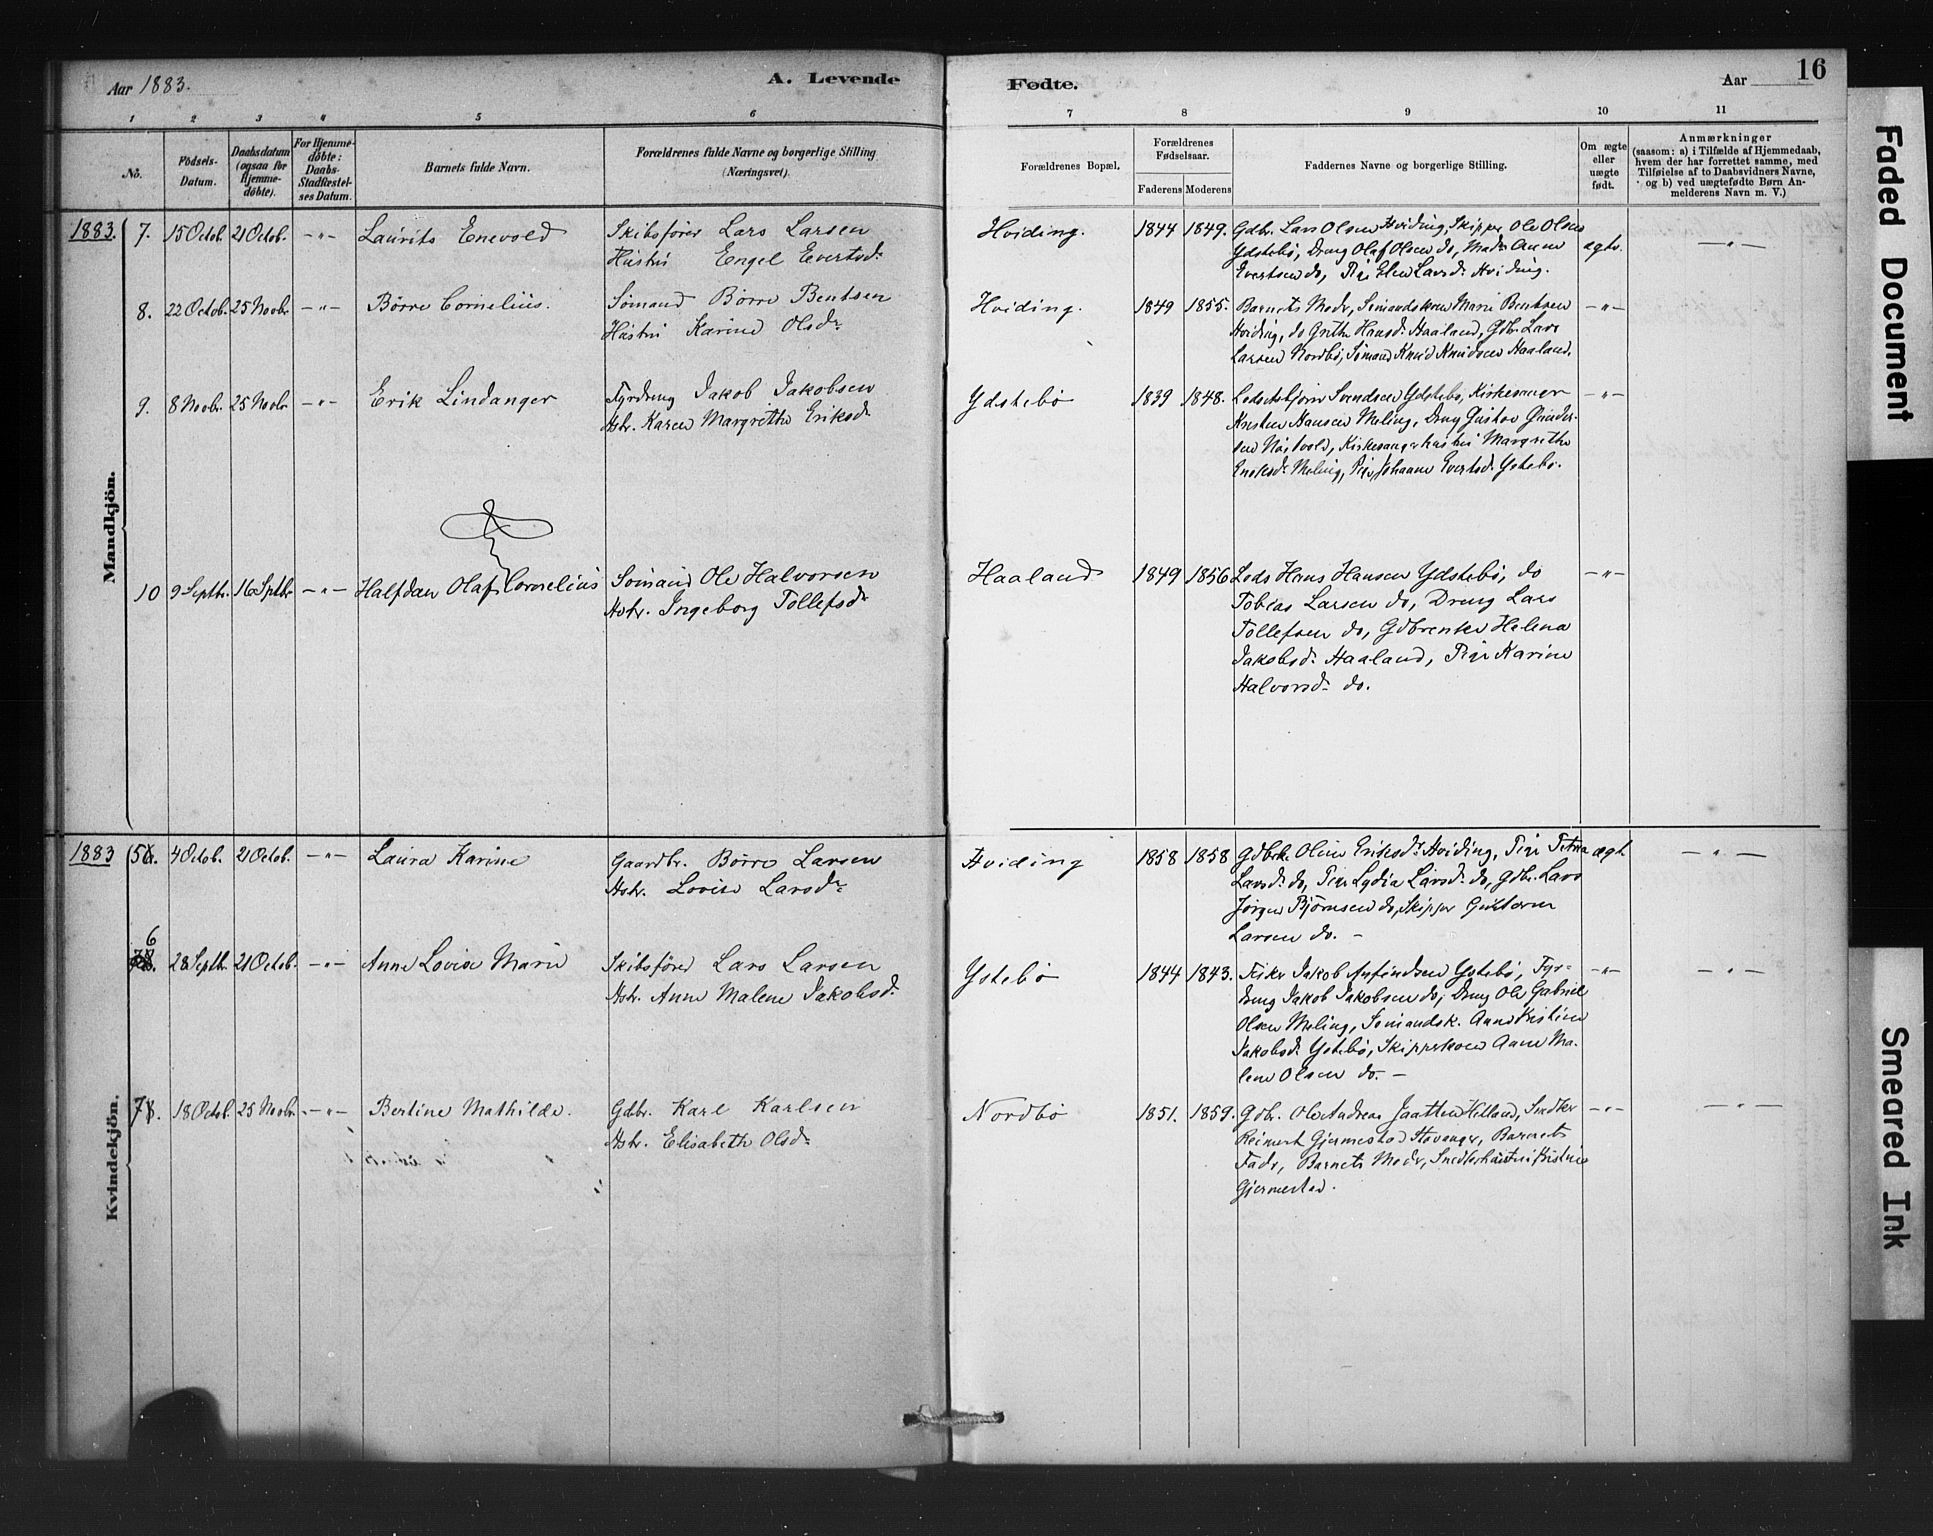 Aar 1883.
A. Levende
Fødte.
Aar
16
1 2 3 4 5 6 7 8 9 10 11
No.
Födsels-
Datum.
Daabsdatum
(ogsaa for
Hjemme-
döbte).
For Hjemme-
döbte:
Daabs-
Stadfæstel-
ses Datum.
Barnets fulde Navn.
Forældrenes fulde Navne og borgerlige Stilling
(Næringsvei).
Forældrenes Bopæl.
Forældrenes
Fødselsaar.
Faderens Moderens
Faddernes Navne og borgerlige Stilling.
Om ægte
eller
uægte
født.
Anmærkninger
(saasom: a) i Tilfælde af Hjemmedaab,
hvem der har forrettet samme, med
Tilføielse af to Daabsvidners Navne,
og b) ved uægtefødte Børn An-
melderens Navn m. V.)
Mandkjön.
1883. 7. 15 Octob. 21 Octob. -"- Laurits Enevold
Skibsfører Lars Larsen
Hustru Engel Evertsd.
Hviding. 1844 1849.
Gdbr. Lars Olsen Hviding, Skipper Ole Olsen
Ydstebø, Dreng Olaf Olsen do, Mad. Anne
Evertsen do, Pige Elen Larsd. Hviding.
ægte. -"-
8. 22 Octob. 25 Novbr. -"- Børre Cornelius.
Sømand Børre Bentsen
Hustru Karine Olsd.
Hviding. 1849 1855.
Barnets Moder, Sømandskone Marie Bentsen
Hviding, do Grethe Hansd. Haaland, Gdbr. Lars
Larsen Nordbø, Sømand Knud Knudsen Haaland.
-"-
9. 8 Novbr. 25 Novbr. -"- Erik Lindanger
Fyrdreng Jakob Jakobsen
Hstr. Karen Margrethe Eriksd.
Ydstebø 1839 1848.
Lods Svendsen Ydstebø, Kirkesanger
Kristen Hansen Meling, Dreng Gustav Gunder-
sen Kirkesanger hustru Margrethe
Eriksd. Meling, Pige Johanne Evertsd. Ystebø.
-"-
10 9 Septbr. 16 Septbr. -"- Halfdan Olaf Cornelius
Sømand Ole Halvorsen
Hstr. Ingeborg Tollefsd.
Haaland 1849 1856
Lods Hans Hansen Ydstebø, do
Tobias Larsen do, Dreng Lars
Tollefsen do, Gdbrenke Helena
Jakobsd. Haaland, Pige Karine
Halvorsd. do.
-"-
Kvindekjön.
1883 5. 4 Octob. 21 Octob. -"- Laura Karine
Gaardbr. Børre Larsen
Hstr. Lovise Larsd.
Hviding 1858 1858
Gdbrk. Oline Eriksd. Hviding, Pige
Larsd. do, Pige Lydia Larsd. do, Gdbr. Lars
Jørgen Bjørnsen do, Skipper
Larsen do. -
ægte -"-
6 28 Septbr. 21 Octob. -"- Anne Lovise Marie
Skibsfører Lars Larsen
Hstr. Anne Malene Jakobsd.
Ystebø 1844 1843.
Fisker Jakob Asfindsen Ystebø, Fyr-
dreng Jakob Jakobsen do, Dreng Ole Gabriel
Olsen Meling, Sømandsk. Anne Kristine
Jakobsd. Ystebø, Skipperkone Anne Ma-
lene Olsen do. -
-"- -"-
7. 18 Octob. 25 Novbr. -"- Bertine Mathilde.
Gdbr. Karl Karlsen
Hstr. Elisabeth Olsd.
Nordbø 1851. 1859.
Gdbr. Ole Andreas Jaatten Hetland, Snedker
Reinert Gjermestad Stavanger, Barnets
Fader, Barnets Moder, Snedkerhustru Kristine
Gjermestad.
-"- -"-
Faded Document
Smeared Ink